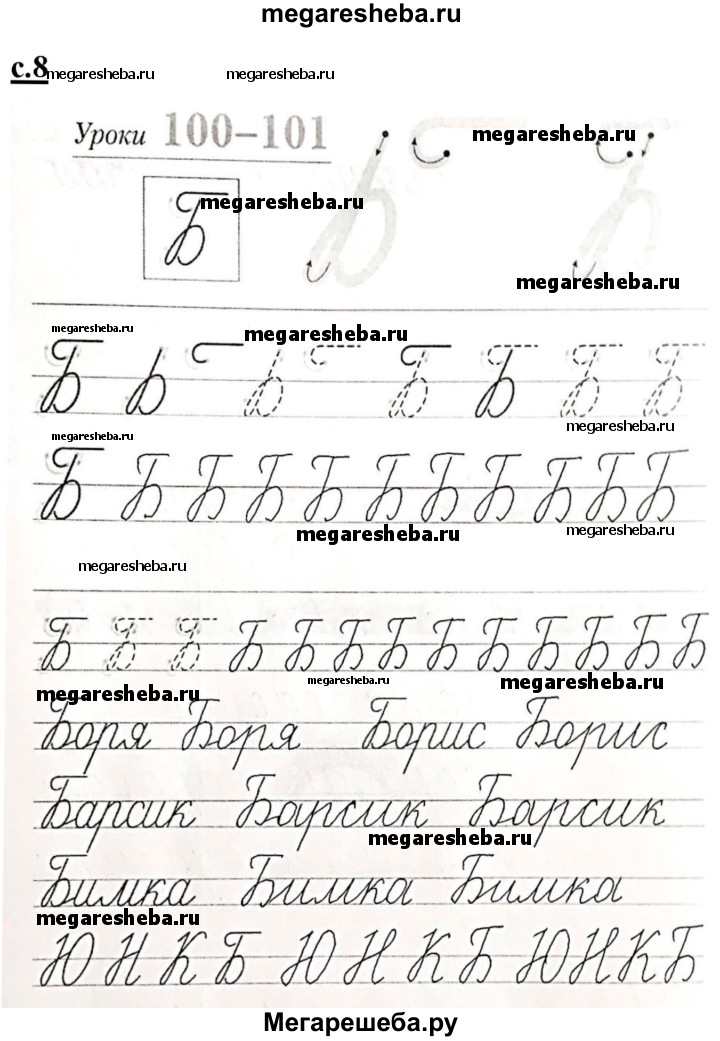 megaresheba.ru
с.8 megaresheba.ru megaresheba.ru
Уроки 100–101
megaresheba.ru
Б megaresheba.ru
megaresheba.ru
Б
Б
megaresheba.ru megaresheba.ru
Б Б Б Б Б Б Б
megaresheba.ru
megaresheba.ru
Б Б Б Б Б Б Б Б Б Б Б
megaresheba.ru megaresheba.ru
megaresheba.ru
Б Б Б Б Б Б Б Б Б Б Б Б Б
megaresheba.ru megaresheba.ru megaresheba.ru
Боря Боря Борис Борис
Барсик Барсик Барсик
megaresheba.ru
Бимка Бимка Бимка
megaresheba.ru
Ю Н К Б Ю Н К Б Ю Н К Б
Мегарешеба.ру